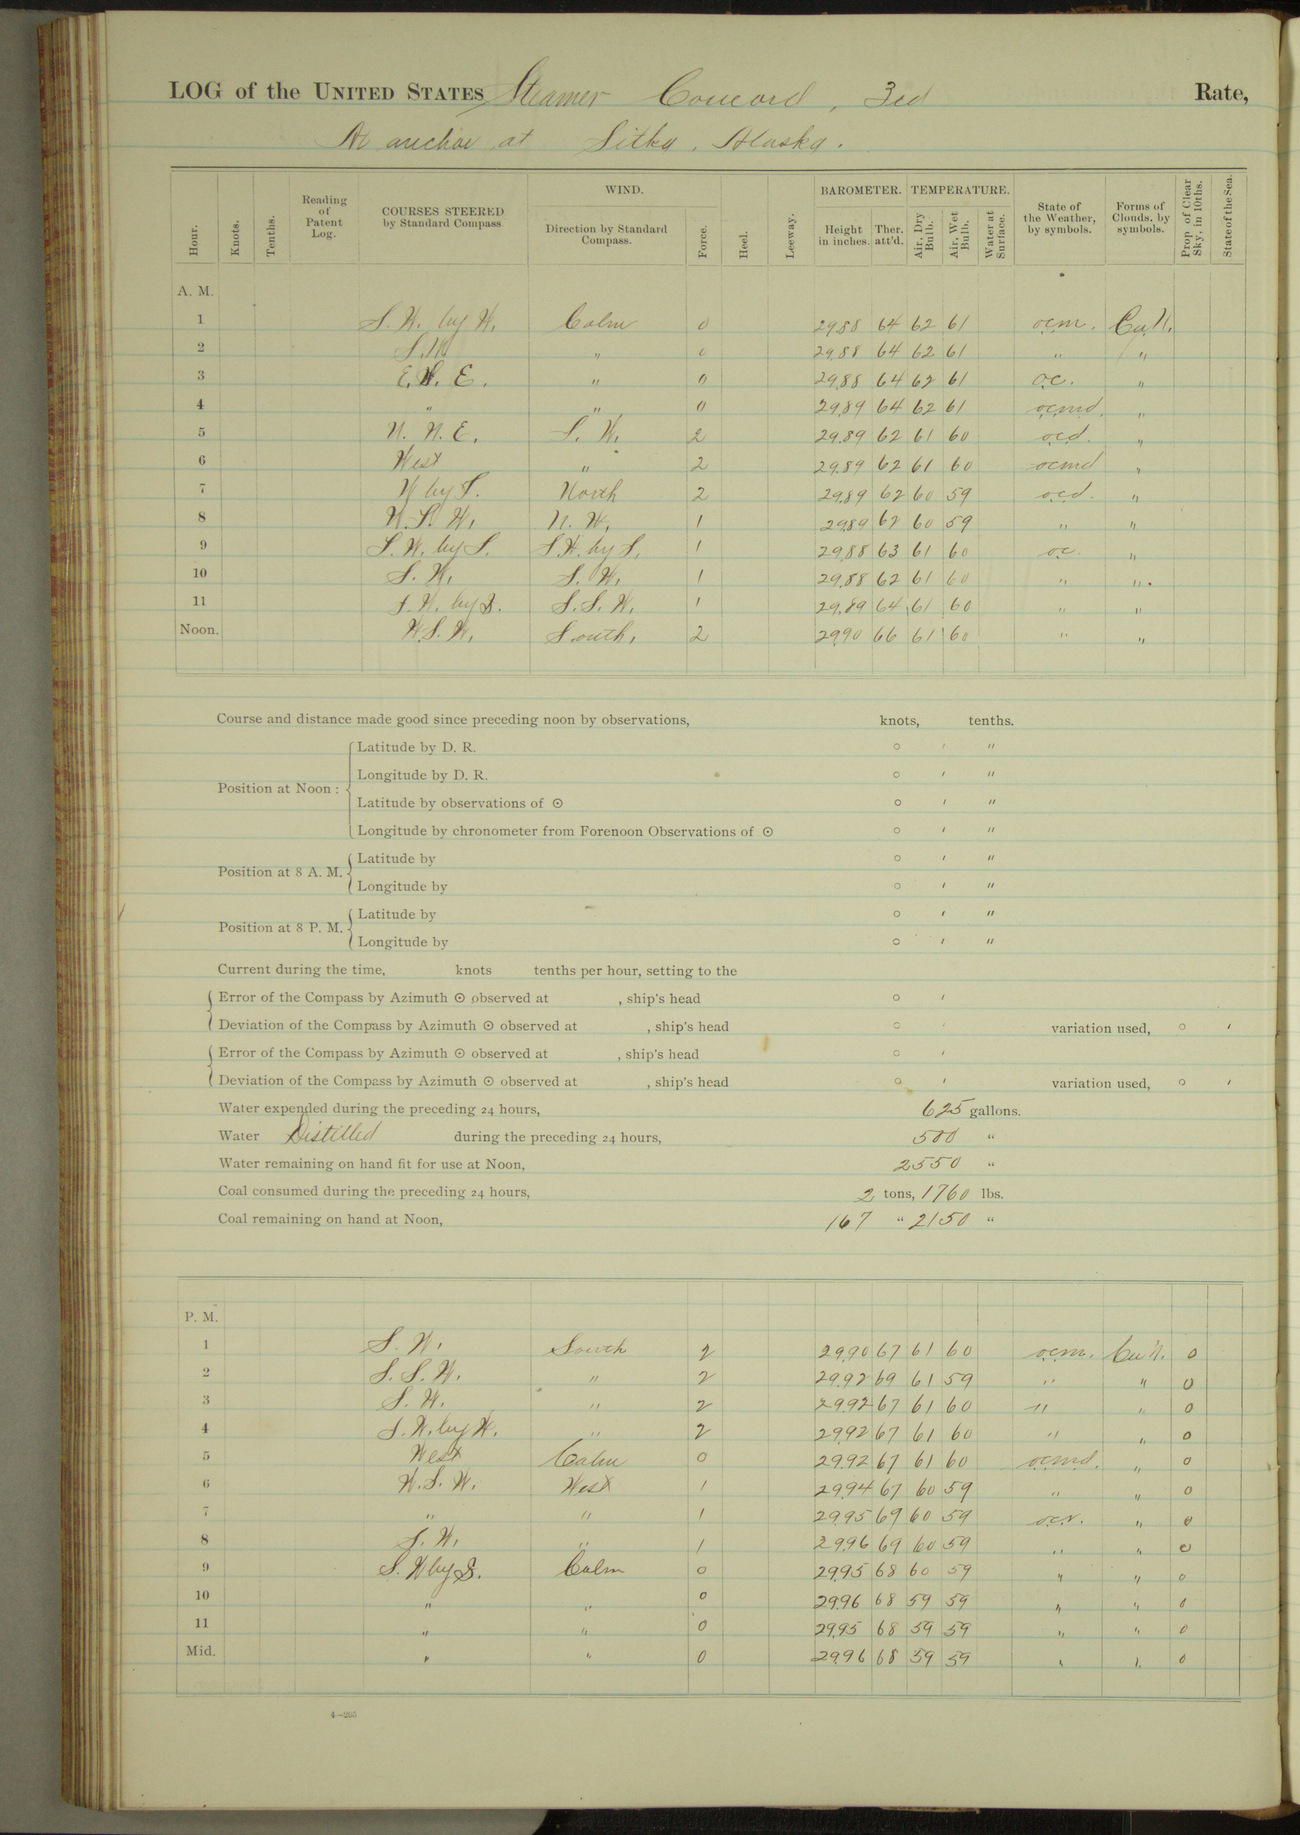 LOG of the UNITED STATES Steamer Concord, 3rd Rate,
At anchor at Sitka, Alaska.
Hour. Knots. Tenths. Reading of Patent Log. COURSES STEERED by Standard Compass WIND. Direction by Standard Compass. Force. Heel. Leeway. BAROMETER. Height in inches. Ther. att'd. TEMPERATURE. Air, Dry Bulb. Air, Wet Bulb. Water at Surface. State of the Weather, by symbols. Forms of Clouds, by symbols. Prop. of Clear Sky, in 10ths. State of the Sea.
A. M.
1 S. W. by W. Calm 0 29.88 64 62 61 o.c.m. Cu.N.
2 S.W. " 0 29.88 64 62 61 " "
3 E. S. E. " 0 29.88 64 62 61 o.c. "
4 " " 0 29.89 64 62 61 o.c.m.d. "
5 N. N. E. S. W. 2 29.89 62 61 60 o.c.d. "
6 West " 2 29.89 62 61 60 o.c.m.d "
7 W by S. North 2 29.89 62 60 59 o.c.d. "
8 W. S. W. N. W. 1 29.89 62 60 59 " "
9 S. W. by S. S.W. by S. 1 29.88 63 61 60 o.c. "
10 S. W. S. W. 1 29.88 62 61 60 " "
11 S. W. by S. S. S. W. 1 29.89 64 61 60 " "
Noon. W. S. W. South. 2 29.90 66 61 60 " "
Course and distance made good since preceding noon by observations, knots, tenths.
Position at Noon :
Latitude by D. R. ° ′ ″
Longitude by D. R. ° ′ ″
Latitude by observations of ⊙ ° ′ ″
Longitude by chronometer from Forenoon Observations of ⊙ ° ′ ″
Position at 8 A. M.
Latitude by ° ′ ″
Longitude by ° ′ ″
Position at 8 P. M.
Latitude by ° ′ ″
Longitude by ° ′ ″
Current during the time, knots tenths per hour, setting to the
Error of the Compass by Azimuth ⊙ observed at , ship's head ° ′
Deviation of the Compass by Azimuth ⊙ observed at , ship's head ° ′ variation used, ° ′
Error of the Compass by Azimuth ⊙ observed at , ship's head ° ′
Deviation of the Compass by Azimuth ⊙ observed at , ship's head ° ′ variation used, ° ′
Water expended during the preceding 24 hours, 625 gallons.
Water Distilled during the preceding 24 hours, 500 "
Water remaining on hand fit for use at Noon, 2550 "
Coal consumed during the preceding 24 hours, 2 tons, 1760 lbs.
Coal remaining on hand at Noon, 167 " 2150 "
P. M.
1 S. W. South 2 29.90 67 61 60 o.c.m. Cu N. 0
2 S. S. W. " 2 29.92 69 61 59 " " 0
3 S. W. " 2 29.92 67 61 60 " " 0
4 S. W. by W. " 2 29.92 67 61 60 " " 0
5 West Calm 0 29.92 67 61 60 o.c.m.d. " 0
6 W. S. W. West 1 29.94 67 60 59 " " 0
7 " " 1 29.95 69 60 59 o.c.r. " 0
8 S. W. " 1 29.96 69 60 59 " " 0
9 S. W by S. Calm 0 29.95 68 60 59 " " 0
10 " " 0 29.96 68 59 59 " " 0
11 " " 0 29.95 68 59 59 " " 0
Mid. " " 0 29.96 68 59 59 " " 0
4—205